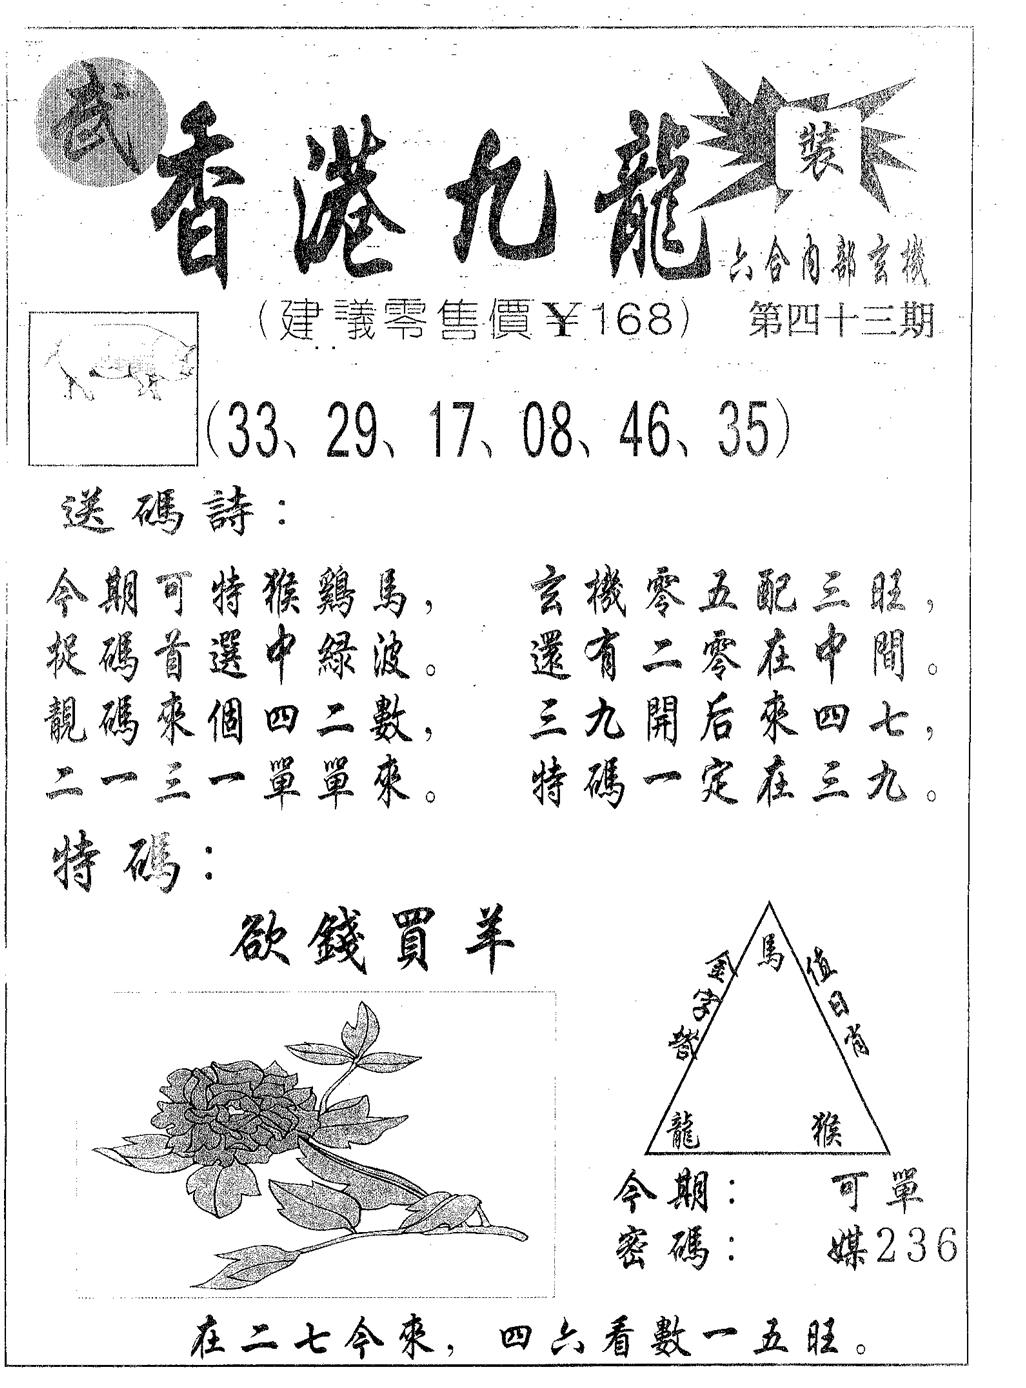 武
香港九龍
裝
六合內部玄機
（建議零售價￥168）
第四十三期
（33、29、17、08、46、35）
送碼詩：
今期可特猴鷄馬，
捉碼首選中綠波。
靚碼來個四二數，
二一三一單單來。
玄機零五配三旺，
還有二零在中間。
三九開后來四七，
特碼一定在三九。
特碼：
欲錢買羊
金字
馬
值日肖
龍
猴
今期：可單
密碼：媒236
在二七今來，四六看數一五旺。